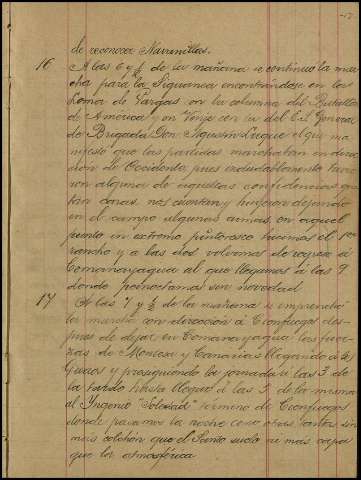 de reconocer Naranillas.
16 A las 6 y ½ de la mañana se continuó la mar
cha para la Siguanea encontrándose en las
Loma de Vargas con la columna del Batallon
de America y un Tercio con la del Exl. General
de Brigada Don Agustin Luque el que ma
nifestó que las partidas marchaban en direc
ción de Occidente pues indudablemente tuvie
ron alguna de aquellas confidencias que
tan caras nos cuestan y huyeron dejando
en el campo algunas armas, en aquel
punto en estremo pintoresco hicimos el 1er
rancho y a las dos volvimos de regreso á
Comanayagua al que llegamos á las 9
donde pernoctamos sin novedad.
17 A las 7 y ½ de la mañana se emprendió
la marcha con dirección á Cienfuegos des-
pues de dejar en Comanayagua las fuer-
zas de Montesa y Canarias llegando á los
Guaos y prosiguiendo la jornada á las 3 de
la tarde hasta llegar á las 5 de la misma
al Ingenio "Soledad" termino de Cienfuegos
donde pasamos la noche como otras tantas sin
mas colchón que el Santo suelo ni mas capa
que la atmosférica